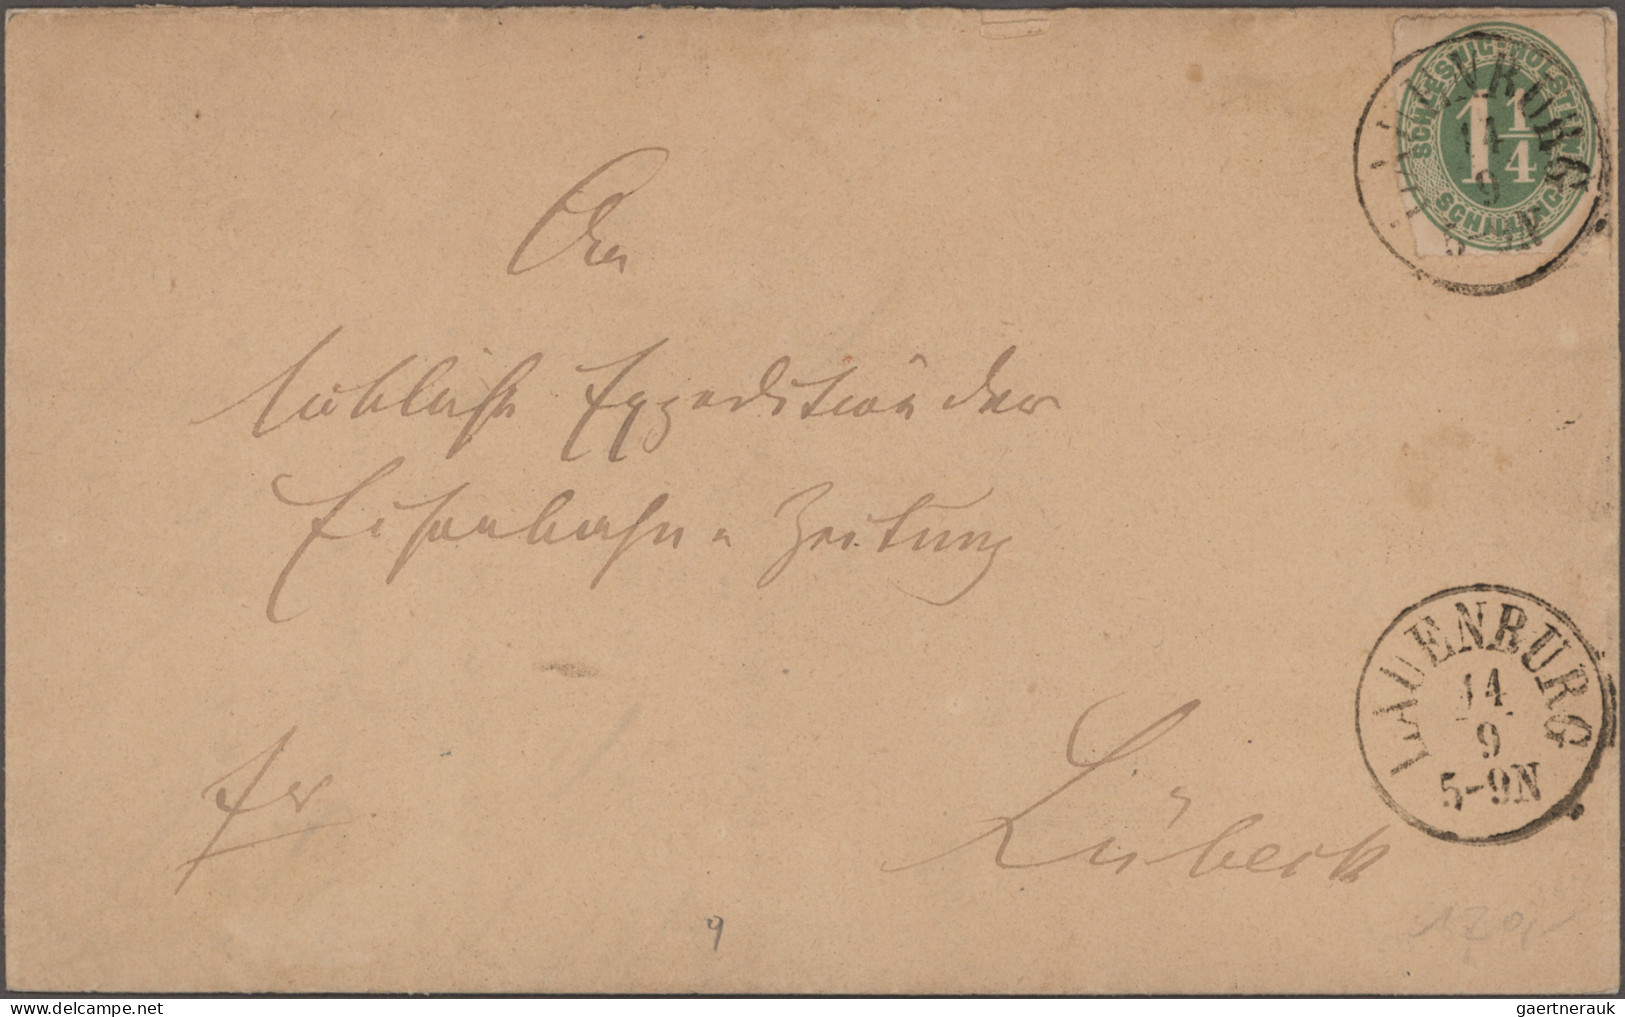 SCHLESWIG-HOLSTEIN
1 1/4
SCHILLING
LAUENBURG
14
9
5-9N
An
Löbliche Expedition der
Eisenbahn-Zeitung
fr
Lübeck
LAUENBURG
14
9
5-9N
9
120,-
gaertnerauk